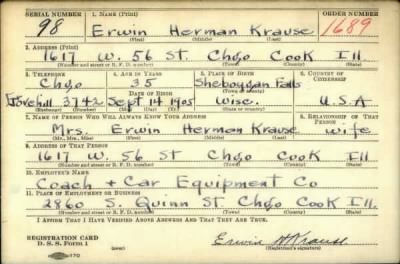 SERIAL NUMBER 1. NAME (Print) ORDER NUMBER
98 Erwin Herman Krause 1689
(First) (Middle) (Last)
2. ADDRESS (Print)
1617 W. 56 St. Chgo Cook Ill
(Number and street or R. F. D. number) (Town) (County) (State)
3. TELEPHONE 4. AGE IN YEARS 5. PLACE OF BIRTH 6. COUNTRY OF CITIZENSHIP
Chgo 35 Sheboygan Falls
DATE OF BIRTH (Town or county)
3742 Sept 14 1905 Wisc. U.S.A
(Exchange) (No.) (Mo.) (Day) (Yr.) (State or country)
7. NAME OF PERSON WHO WILL ALWAYS KNOW YOUR ADDRESS 8. RELATIONSHIP OF THAT PERSON
Mrs. Erwin Herman Krause wife
(Mr., Mrs., Miss) (First) (Middle) (Last)
9. ADDRESS OF THAT PERSON
1617 W. 56 St Chgo Cook Ill
(Number and street or R. F. D. number) (Town) (County) (State)
10. EMPLOYER'S NAME
Coach Car Equipment Co
11. PLACE OF EMPLOYMENT OR BUSINESS
2860 S. Quinn St. Chgo Cook Ill.
(Number and street or R. F. D. number) (Town) (County) (State)
I AFFIRM THAT I HAVE VERIFIED ABOVE ANSWERS AND THAT THEY ARE TRUE.
REGISTRATION CARD
D. S. S. Form 1 Erwin H Krause
(Registrant's signature)